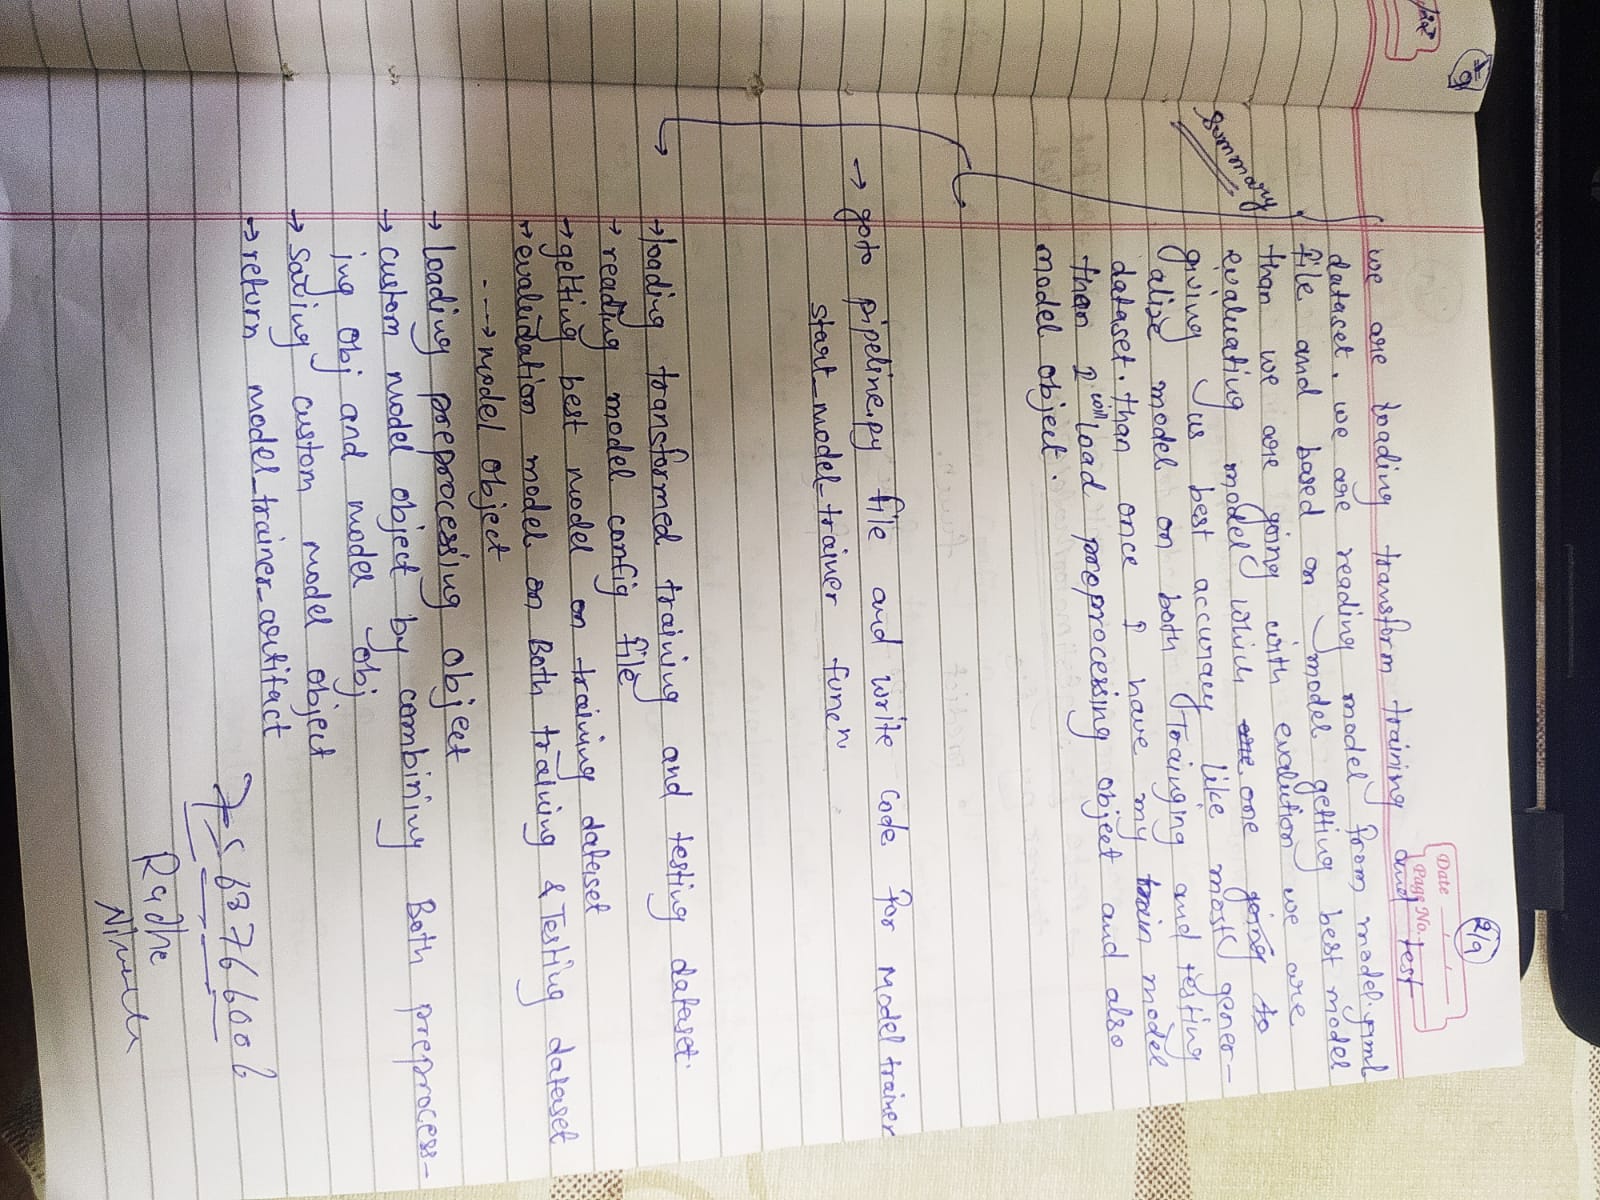 2/9
Date
Page No.
we are loading transform training and test
dataset. we are reading model from model.yaml
file and based on model getting best model
than we are going with evalution we are
evaluating model which one going to
giving us best accuracy like most gener-
alise model on both Trainging and testing
dataset. than once I have my train model
then I will load preprocessing object and also
model object.
Summary
→ goto pipeline.py file and write code for Model trainer
start_model_trainer funcn
→ loading transformed training and testing dataset.
→ reading model config file
→ getting best model on training dataset
→ evaluidation model on Both training & Testing dataset
---→ model object
→ Loading preprocessing object
→ custom model object by combining Both preprocess-
ing obj and model obj
→ saving custom model object
→ return model_trainer_artifact
Radhe